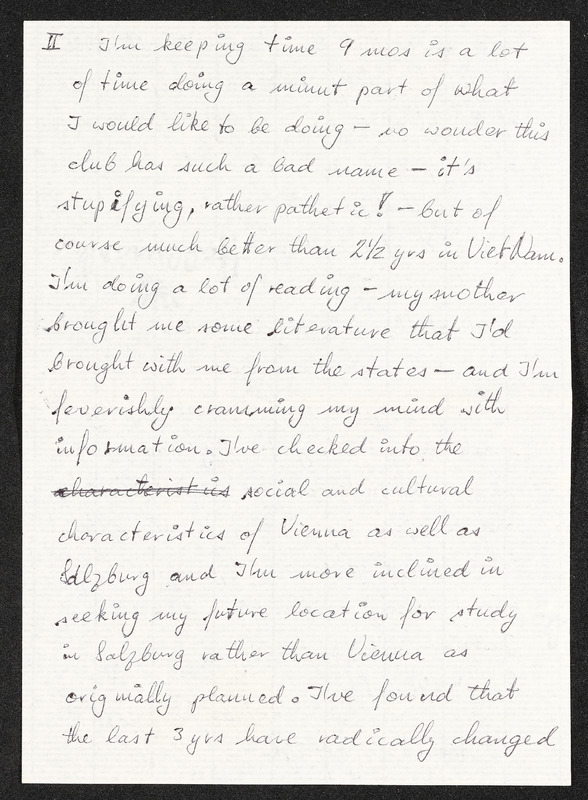 II I'm keeping time 9 mos is a lot
of time doing a minut part of what
I would like to be doing – no wonder this
club has such a bad name – it's
stupifying, rather pathetic! – but of
course much better than 2 1/2 yrs in VietNam.
I'm doing a lot of reading – my mother
brought me some literature that I'd
brought with me from the states – and I'm
feverishly cramming my mind with
information. I've checked into the
characteristics social and cultural
characteristics of Vienna as well as
Salzburg and I'm more inclined in
seeking my future location for study
in Salzburg rather than Vienna as
originally planned. I've found that
the last 3 yrs have radically changed